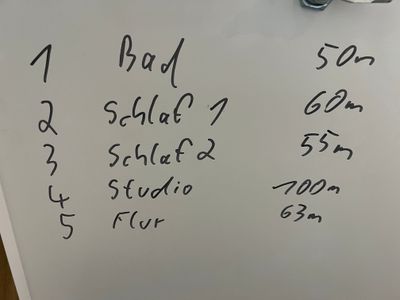 1 Bad 50m
2 Schlaf 1 60m
3 Schlaf 2 55m
4 Studio 100m
5 Flur 63m